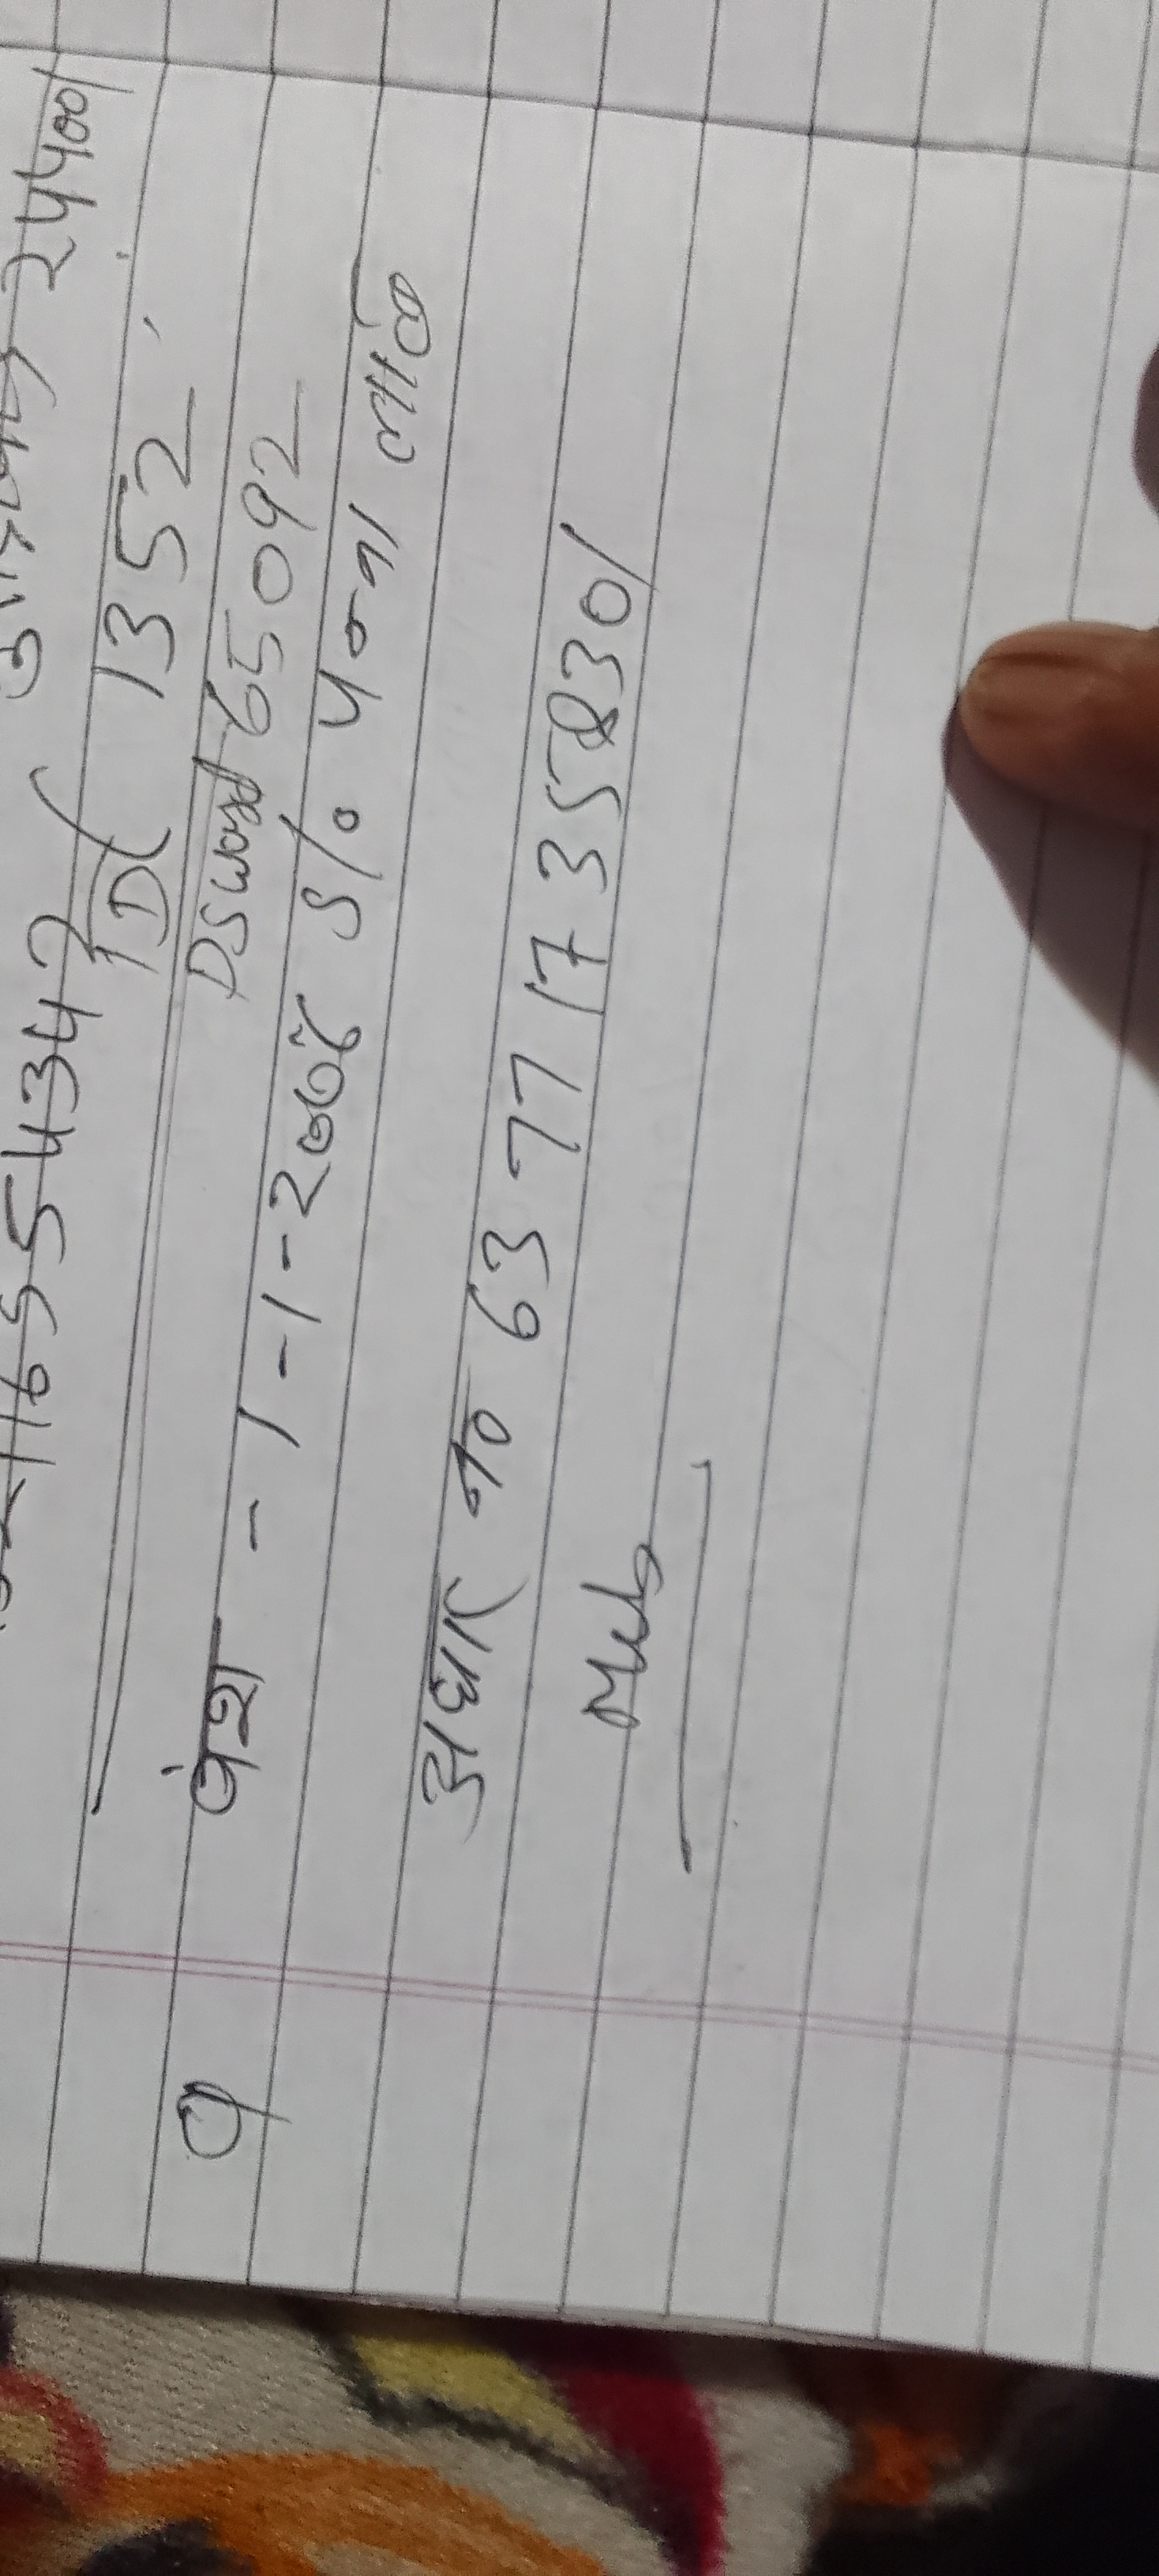 16554347 24400/
ID 1352
DSword 65092
9 वंश - 1-1-2006 S/o पन्ना लाल
अधार न० 63 77 17 358301